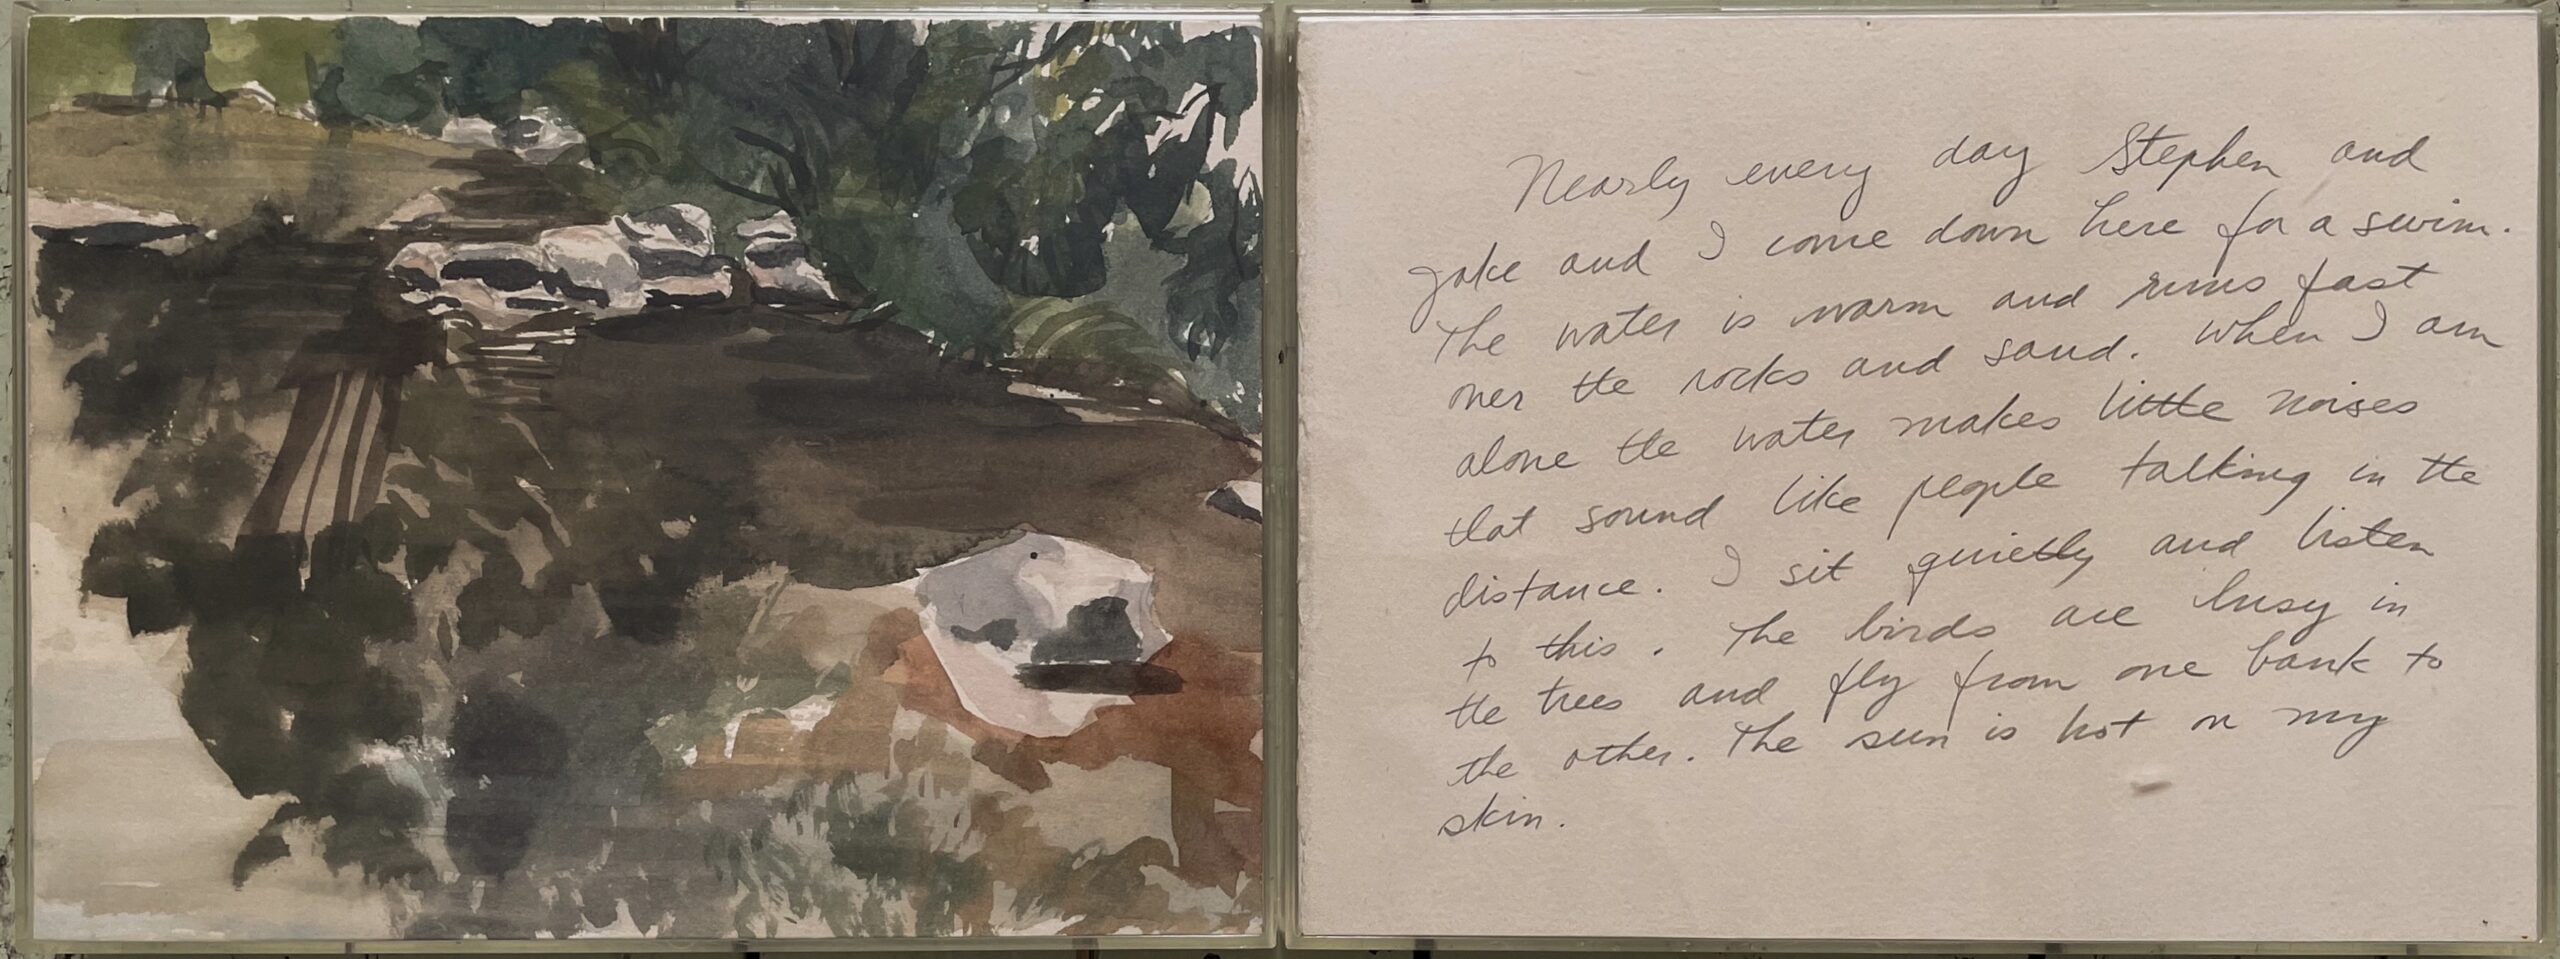 Nearly every day Stephen and
Jake and I come down here for a swim.
The water is warm and runs fast
over the rocks and sand. When I am
alone the water makes little noises
that sound like people talking in the
distance. I sit quietly and listen
to this. The birds are busy in
the trees and fly from one bank to
the other. The sun is hot on my
skin.